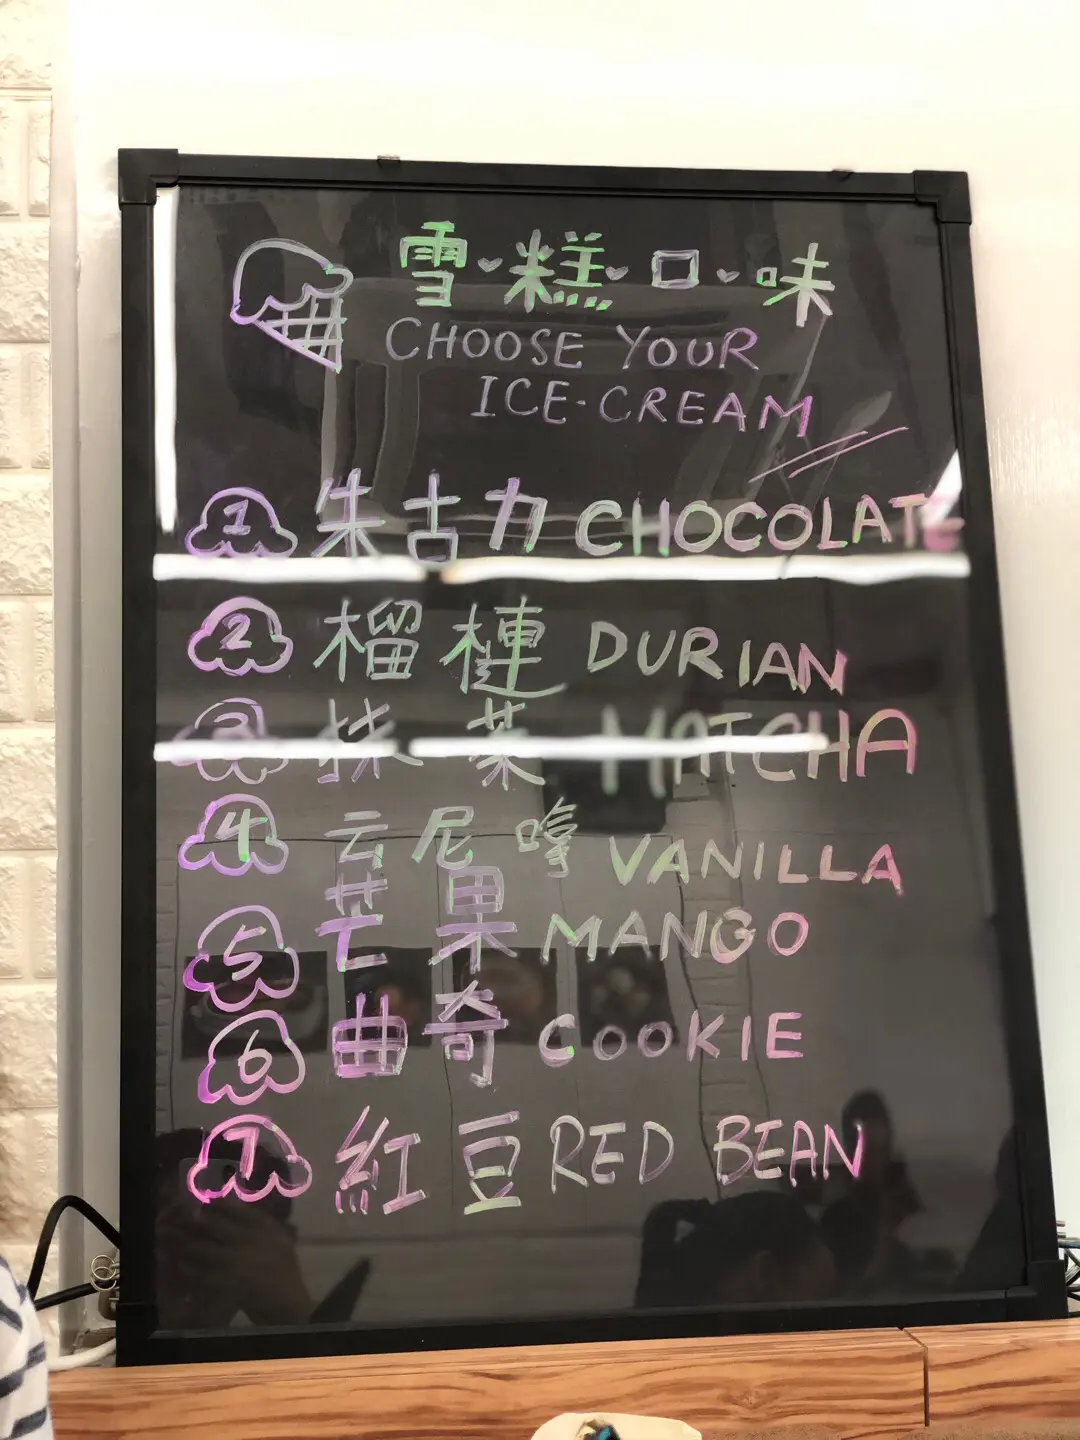 雪糕口味
CHOOSE YOUR
ICE-CREAM
1 朱古力 CHOCOLATE
2 榴槤 DURIAN
3 抹茶 MATCHA
4 云尼嗱 VANILLA
5 芒果 MANGO
6 曲奇 COOKIE
7 紅豆 RED BEAN